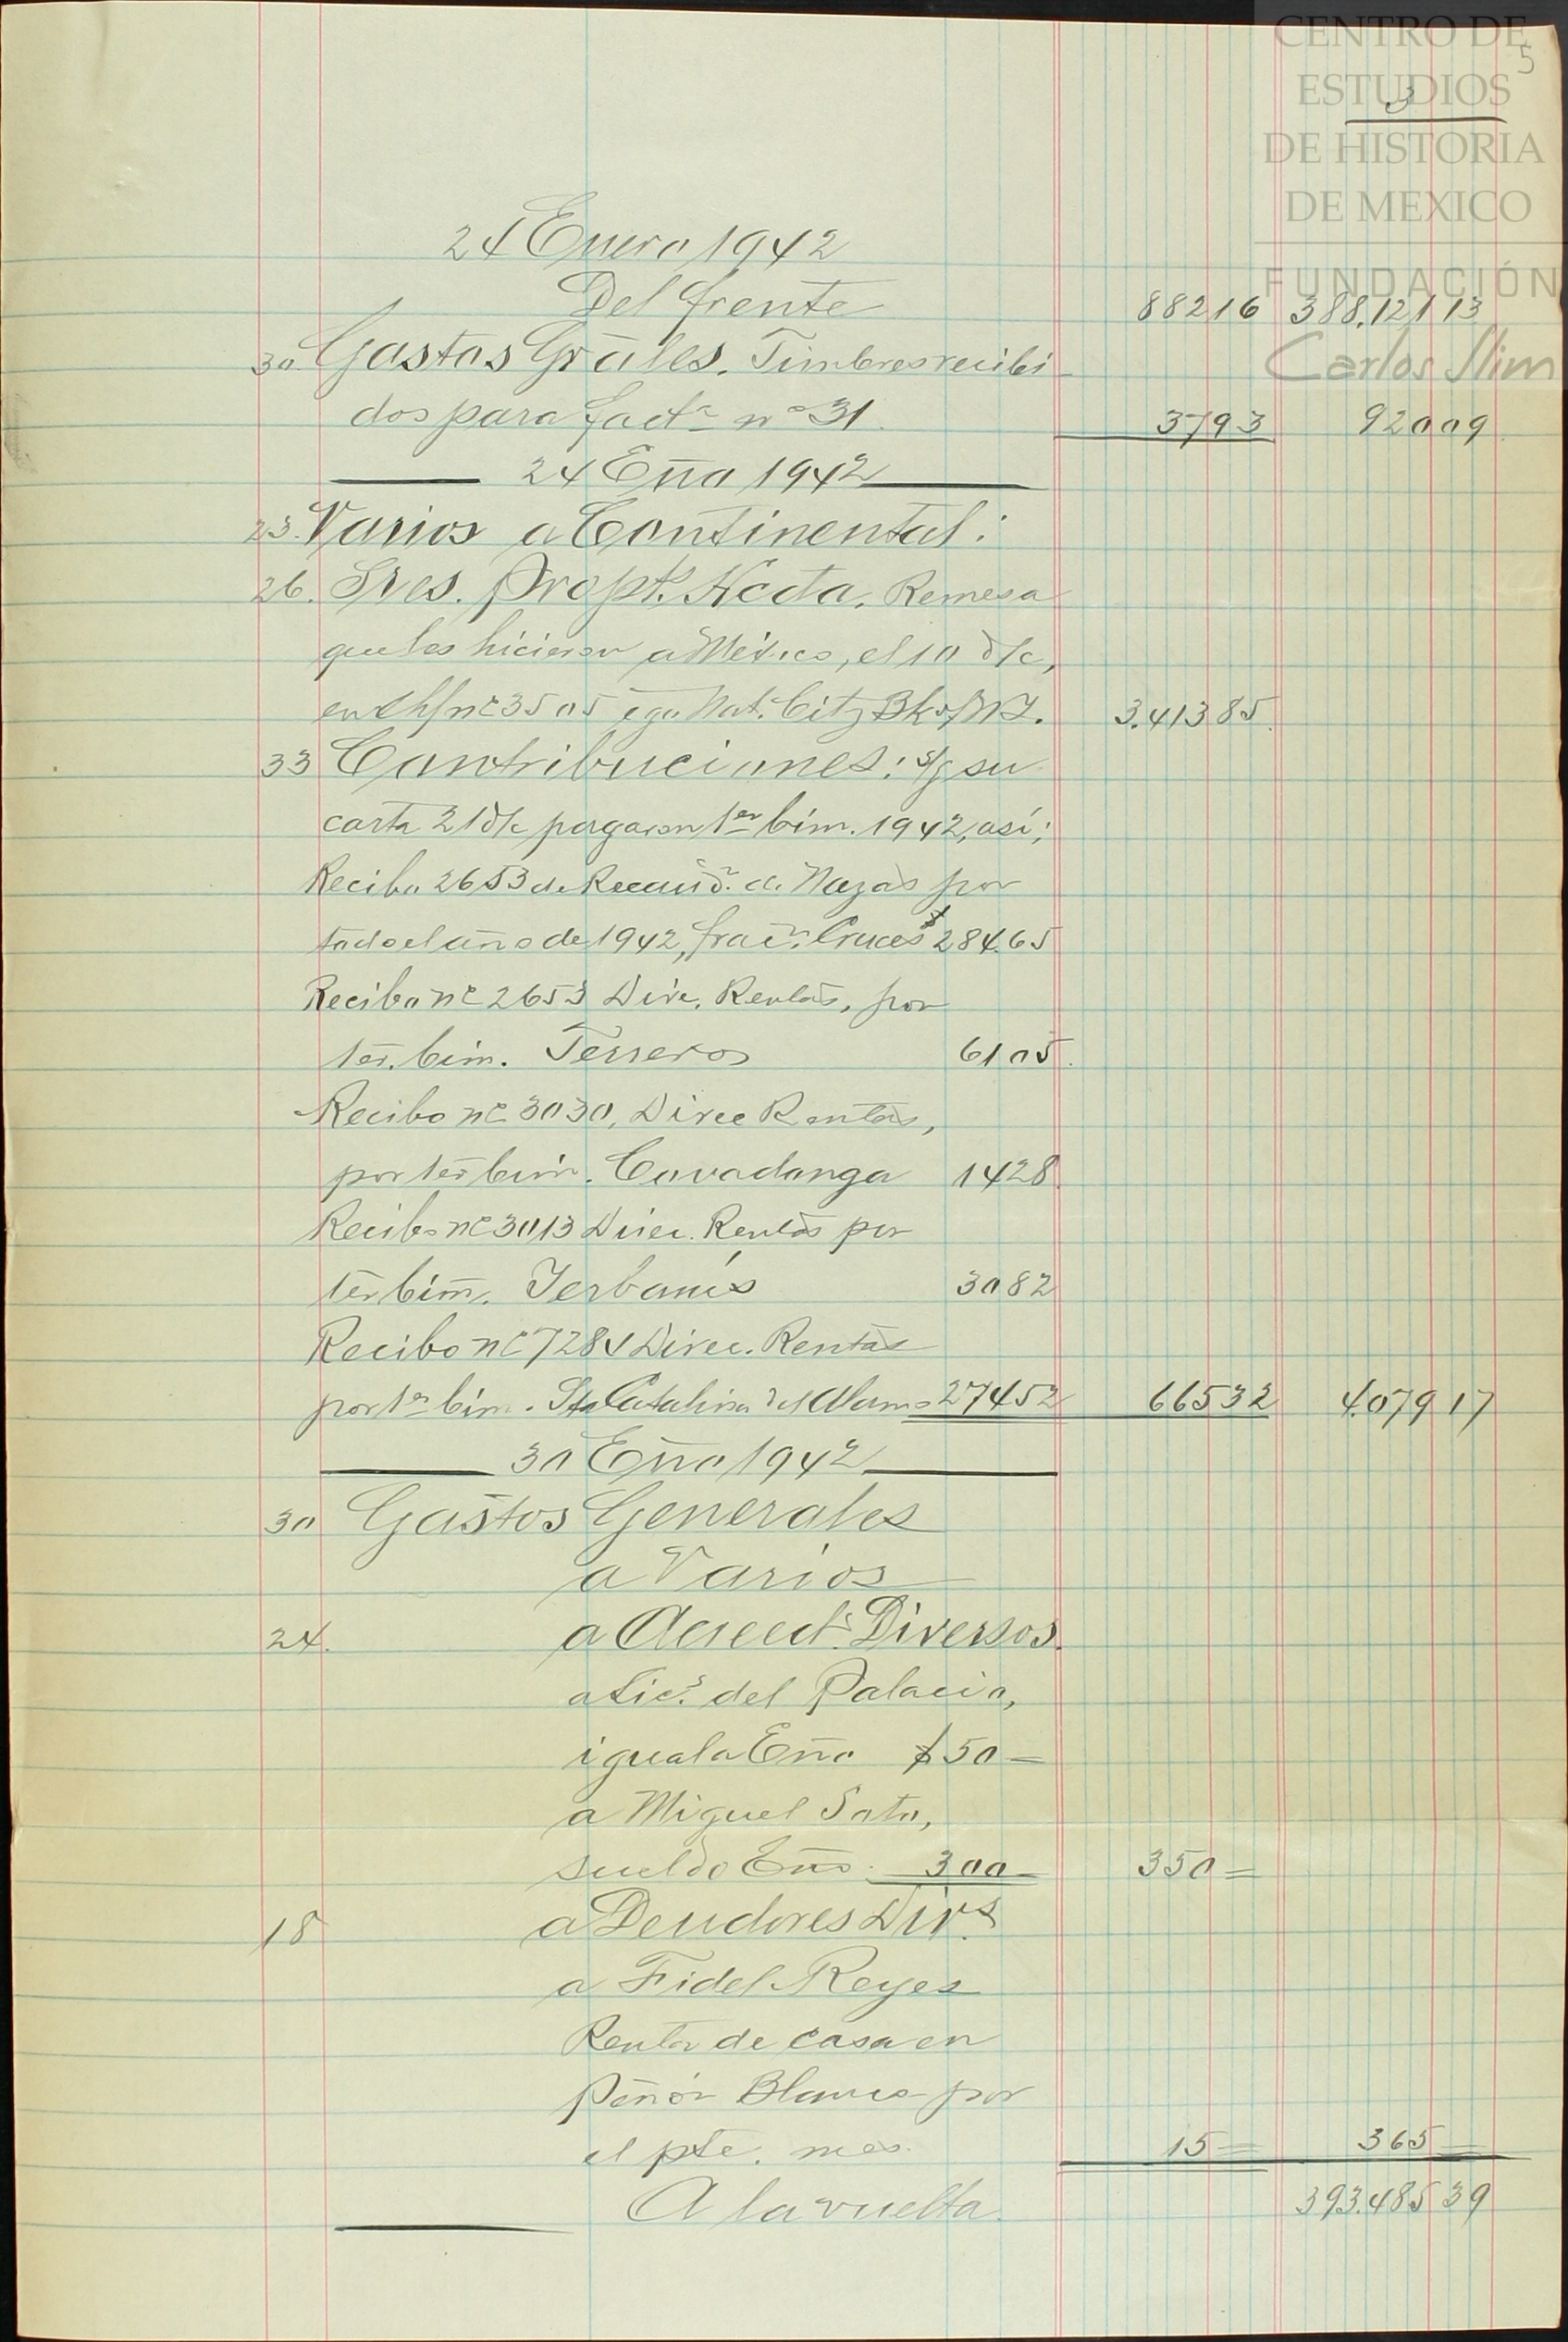 CENTRO DE
5
ESTUDIOS
3
DE HISTORIA
DE MEXICO
FUNDACIÓN
Carlos Slim
24 Enero 1942
Del frente 88216 388.121 13
30. Gastos Gräles. Timbres recibi-
dos para fact. nº 31. 3793 92009
24 Eño 1942
23. Varios a Continental:
26. Sres. Propt. Hcda. Remesa
que les hicieron a México, el 10 d/c,
en Ch/ nº 3505 cgo Nat. City Bk of N.Y. 3.413 85
33 Contribuciones: s/g su
carta 21 d/c pagaron 1er bim. 1942, así:
Recibo 2653 de Recaud. de Nazas por
todo el año de 1942, fracc. Cruces $ 284.65
Recibo nº 2653 Dire. Rentas, por
1er. bim. Terreros 6105
Recibo nº 3030, Direc Rentas,
por 1er bim. Covadonga 1428
Recibo nº 3013 Direc. Rentas por
1er bim. Yerbanís 3082
Recibo nº 7284 Direc. Rentas
por 1er bim. Sta Catalina del Alamo 27452 66532 4.079 17
30 Eño 1942
30 Gastos Generales
a Varios
24. a Acreed. Diversos.
a Lic. del Palacio,
iguala Eño $50=
a Miguel Soto,
sueldo Eño. 300 350=
18 a Deudores Divs.
a Fidel Reyes
Renta de casa en
Peñón Blanco por
el pte. mes. 15= 365=
A la vuelta. 393.485 39